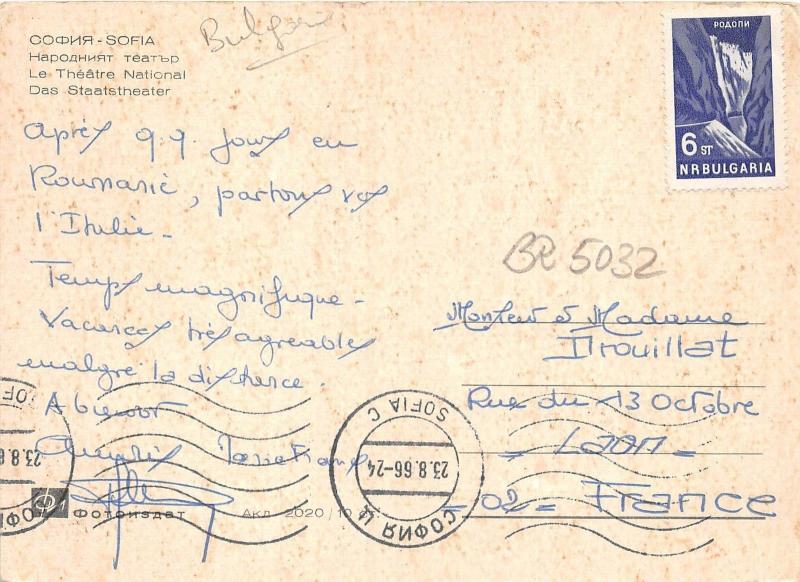 СОФИЯ - SOFIA
Народният театър
Le Théâtre National
Das Staatstheater
Bulgarie
РОДОПИ
6 ST
NRBULGARIA
Après q.q. jours en
Roumanie, partons vers
l'Italie -
Temps magnifique -
Vacances très agréables
malgré la distance.
A bientôt
BR 5032
Monsieur et Madame
Drouillat
Rue du 13 Octobre
Laon -
- 02 - France
SOFIA C
23.8.66-24
СОФИЯ Ц
23.8.66
Фотоиздат
Акл. 2020 / 10